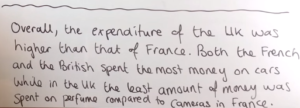 Overall, the expenditure of the UK was
higher than that of France. Both the French
and the British spent the most money on cars
while in the UK the least amount of money was
spent on perfume compared to cameras in France.